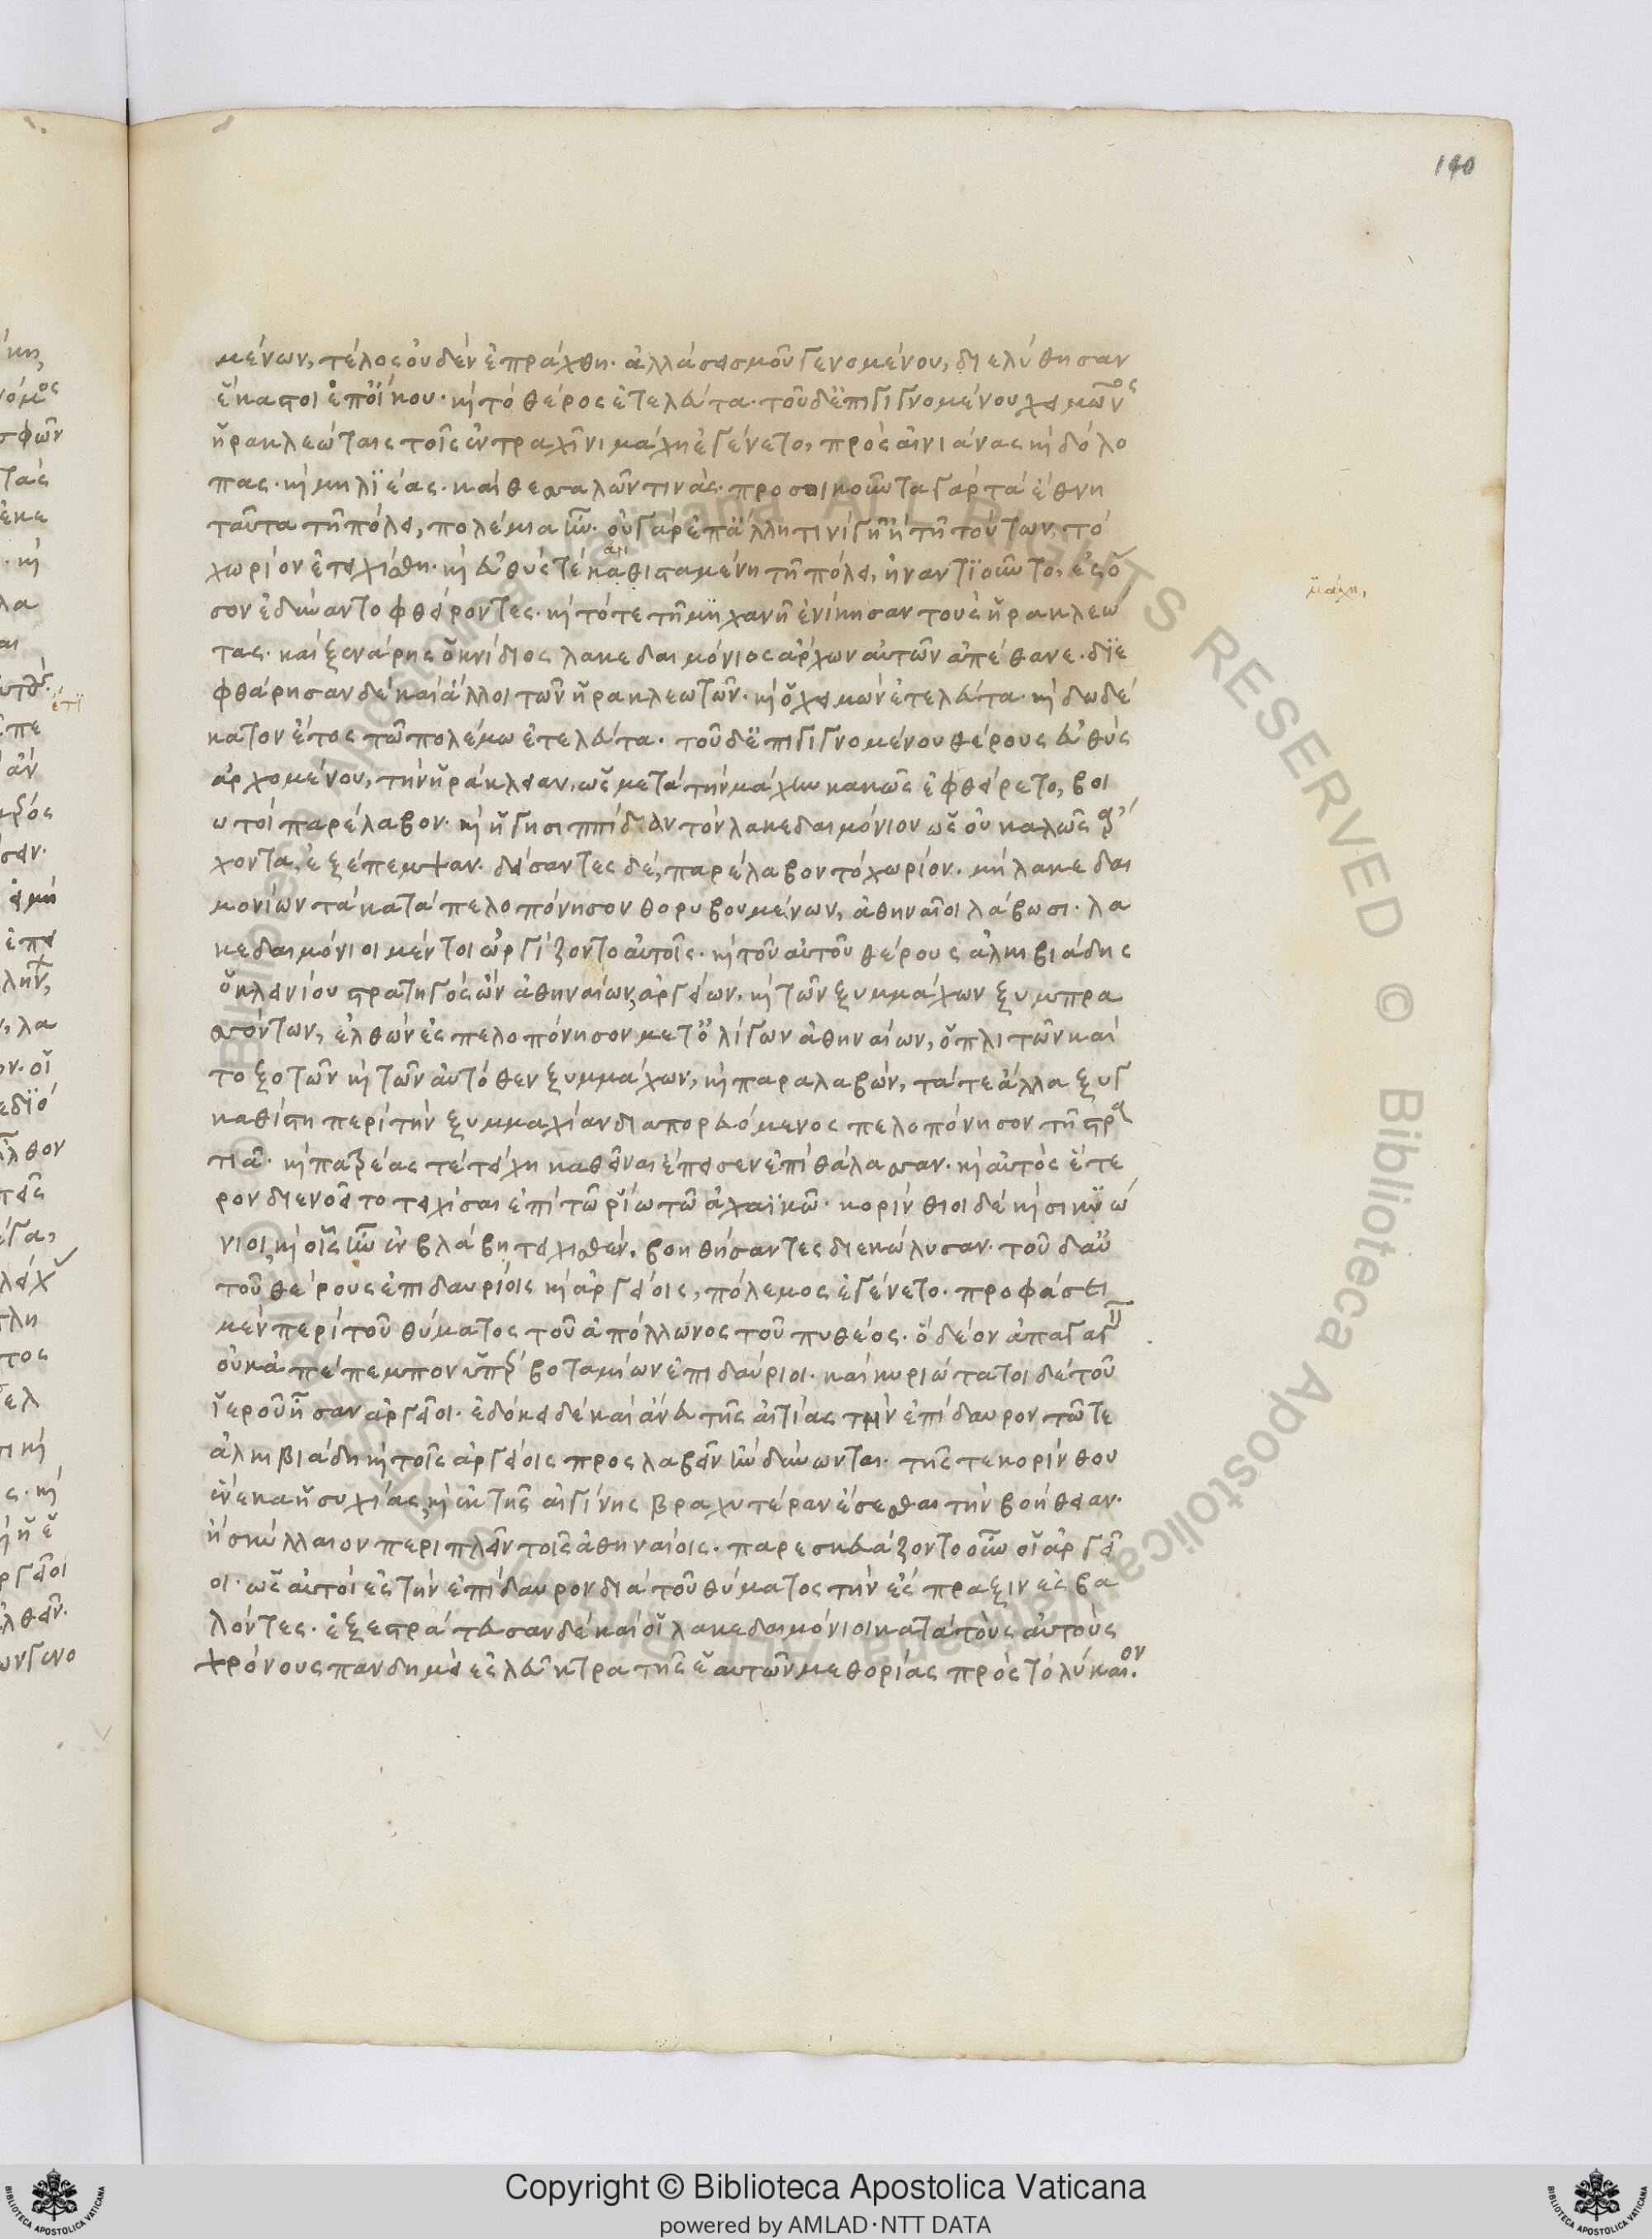 140
μένων, τέλος οὐδὲν ἐπράχθη. ἀλλὰ σεισμοῦ γενομένου, διελύθησαν
ἕκαστοι ἐπ' οἴκου. καὶ τὸ θέρος ἐτελεύτα. τοῦ δ' ἐπιγιγνομένου χειμῶνος
ἡρακλεώταις τοῖς ἐν τραχῖνι μάχη ἐγένετο, πρὸς αἰνιάνας καὶ δόλο
πας. καὶ μηλιέας. καὶ θεσσαλῶν τινάς. προσοικοῦντα γὰρ τὰ ἔθνη
ταῦτα τῇ πόλει, πολέμια ἦν. οὐ γὰρ ἐπ' ἄλλη τινὶ γῇ ἢ τῇ τούτων, τὸ
χωρίον ἐτειχίσθη. καὶ εὐθύς τε καθισταμένη τῇ πόλει, ἠναντιοῦντο, ἐς ὅ
σον ἐδύναντο φθείροντες. καὶ τότε τῇ μάχῃ ἐνίκησαν τοὺς ἡρακλεώ
τας. καὶ ξενάρης ὁ κνίδιος λακεδαιμόνιος ἄρχων αὐτῶν ἀπέθανε. διε
φθάρησαν δὲ καὶ ἄλλοι τῶν ἡρακλεωτῶν. καὶ ὁ χειμὼν ἐτελεύτα. καὶ δωδέ
κατον ἔτος τῶ πολέμω ἐτελεύτα. τοῦ δ' ἐπιγιγνομένου θέρους εὐθὺς
ἀρχομένου, τὴν ἡράκλειαν, ὡς μετὰ τὴν μάχην κακῶς ἐφθείρετο, βοι
ωτοὶ παρέλαβον. καὶ ἡγησιππίδαν τὸν λακεδαιμόνιον ὡς οὐ καλῶς ἄρ
χοντα, ἐξέπεμψαν. δείσαντες δέ, παρέλαβον τὸ χωρίον. μὴ λακεδαι
μονίων τὰ κατὰ πελοπόνησον θορυβουμένων, ἀθηναῖοι λάβωσι. λα
κεδαιμόνιοι μέντοι ὠργίζοντο αὐτοῖς. καὶ τοῦ αὐτοῦ θέρους ἀλκιβιάδης
ὁ κλεινίου στρατηγὸς ὢν ἀθηναίων, ἀργείων. καὶ τῶν ξυμμάχων ξυμπρα
σσόντων, ἐλθὼν ἐς πελοπόνησον μετ' ὀλίγων ἀθηναίων, ὁπλιτῶν καὶ
τοξοτῶν καὶ τῶν αὐτόθεν ξυμμάχων, καὶ παραλαβών, τά τε ἄλλα ξυγ
καθίστη περὶ τὴν ξυμμαχίαν διαπορευόμενος πελοπόνησον τῇ στρα
τιᾷ. καὶ πατρέας τε τείχη καθεῖναι ἔπεισεν ἐπὶ θάλασσαν. καὶ αὐτὸς ἕτε
ρον διενοεῖτο τειχίσαι ἐπὶ τῶ ῥίω τῶ ἀχαϊκῶ. κορίνθιοι δὲ καὶ σικυώ
νιοι, καὶ οἷς ἦν ἐν βλάβη τειχισθέν, βοηθήσαντες διεκώλυσαν. τοῦ δ' αὐ
τοῦ θέρους ἐπιδαυρίοις καὶ ἀργείοις, πόλεμος ἐγένετο. προφάσει
μὲν περὶ τοῦ θύματος τοῦ ἀπόλλωνος τοῦ πυθέος. ὃ δέον ἀπαγαγεῖν
οὐκ ἀπέπεμπον ὑπὲρ βοταμίων ἐπιδαύριοι. καὶ κυριώτατοι δὲ τοῦ
ἱεροῦ ἦσαν ἀργεῖοι. ἐδόκει δὲ καὶ ἄνευ τῆς αἰτίας τὴν ἐπίδαυρον τῶ τε
ἀλκιβιάδη καὶ τοῖς ἀργείοις προσλαβεῖν ἢν δύνωνται. τῆς τε κορίνθου
ἕνεκα ἡσυχίας, καὶ ἐκ τῆς αἰγίνης βραχυτέραν ἔσεσθαι τὴν βοήθειαν.
ἢ σκύλλαιον περιπλεῖν τοῖς ἀθηναίοις. παρεσκευάζοντο οὖν οἱ ἀργεῖ
οι. ὡς αὐτοὶ ἐς τὴν ἐπίδαυρον διὰ τοῦ θύματος τὴν ἔς πραξιν ἐςβα
λόντες. ἐξεστράτευσαν δὲ καὶ οἱ λακεδαιμόνιοι κατὰ τοὺς αὐτοὺς
χρόνους πανδημεὶ ἐς λεῦκτρα τῆς ἑαυτῶν μεθορίας πρὸς τὸ λύκαιον.
μάχη,
Copyright © Biblioteca Apostolica Vaticana
powered by AMLAD·NTT DATA